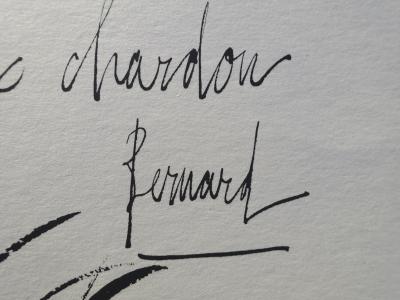 chardon
Bernard